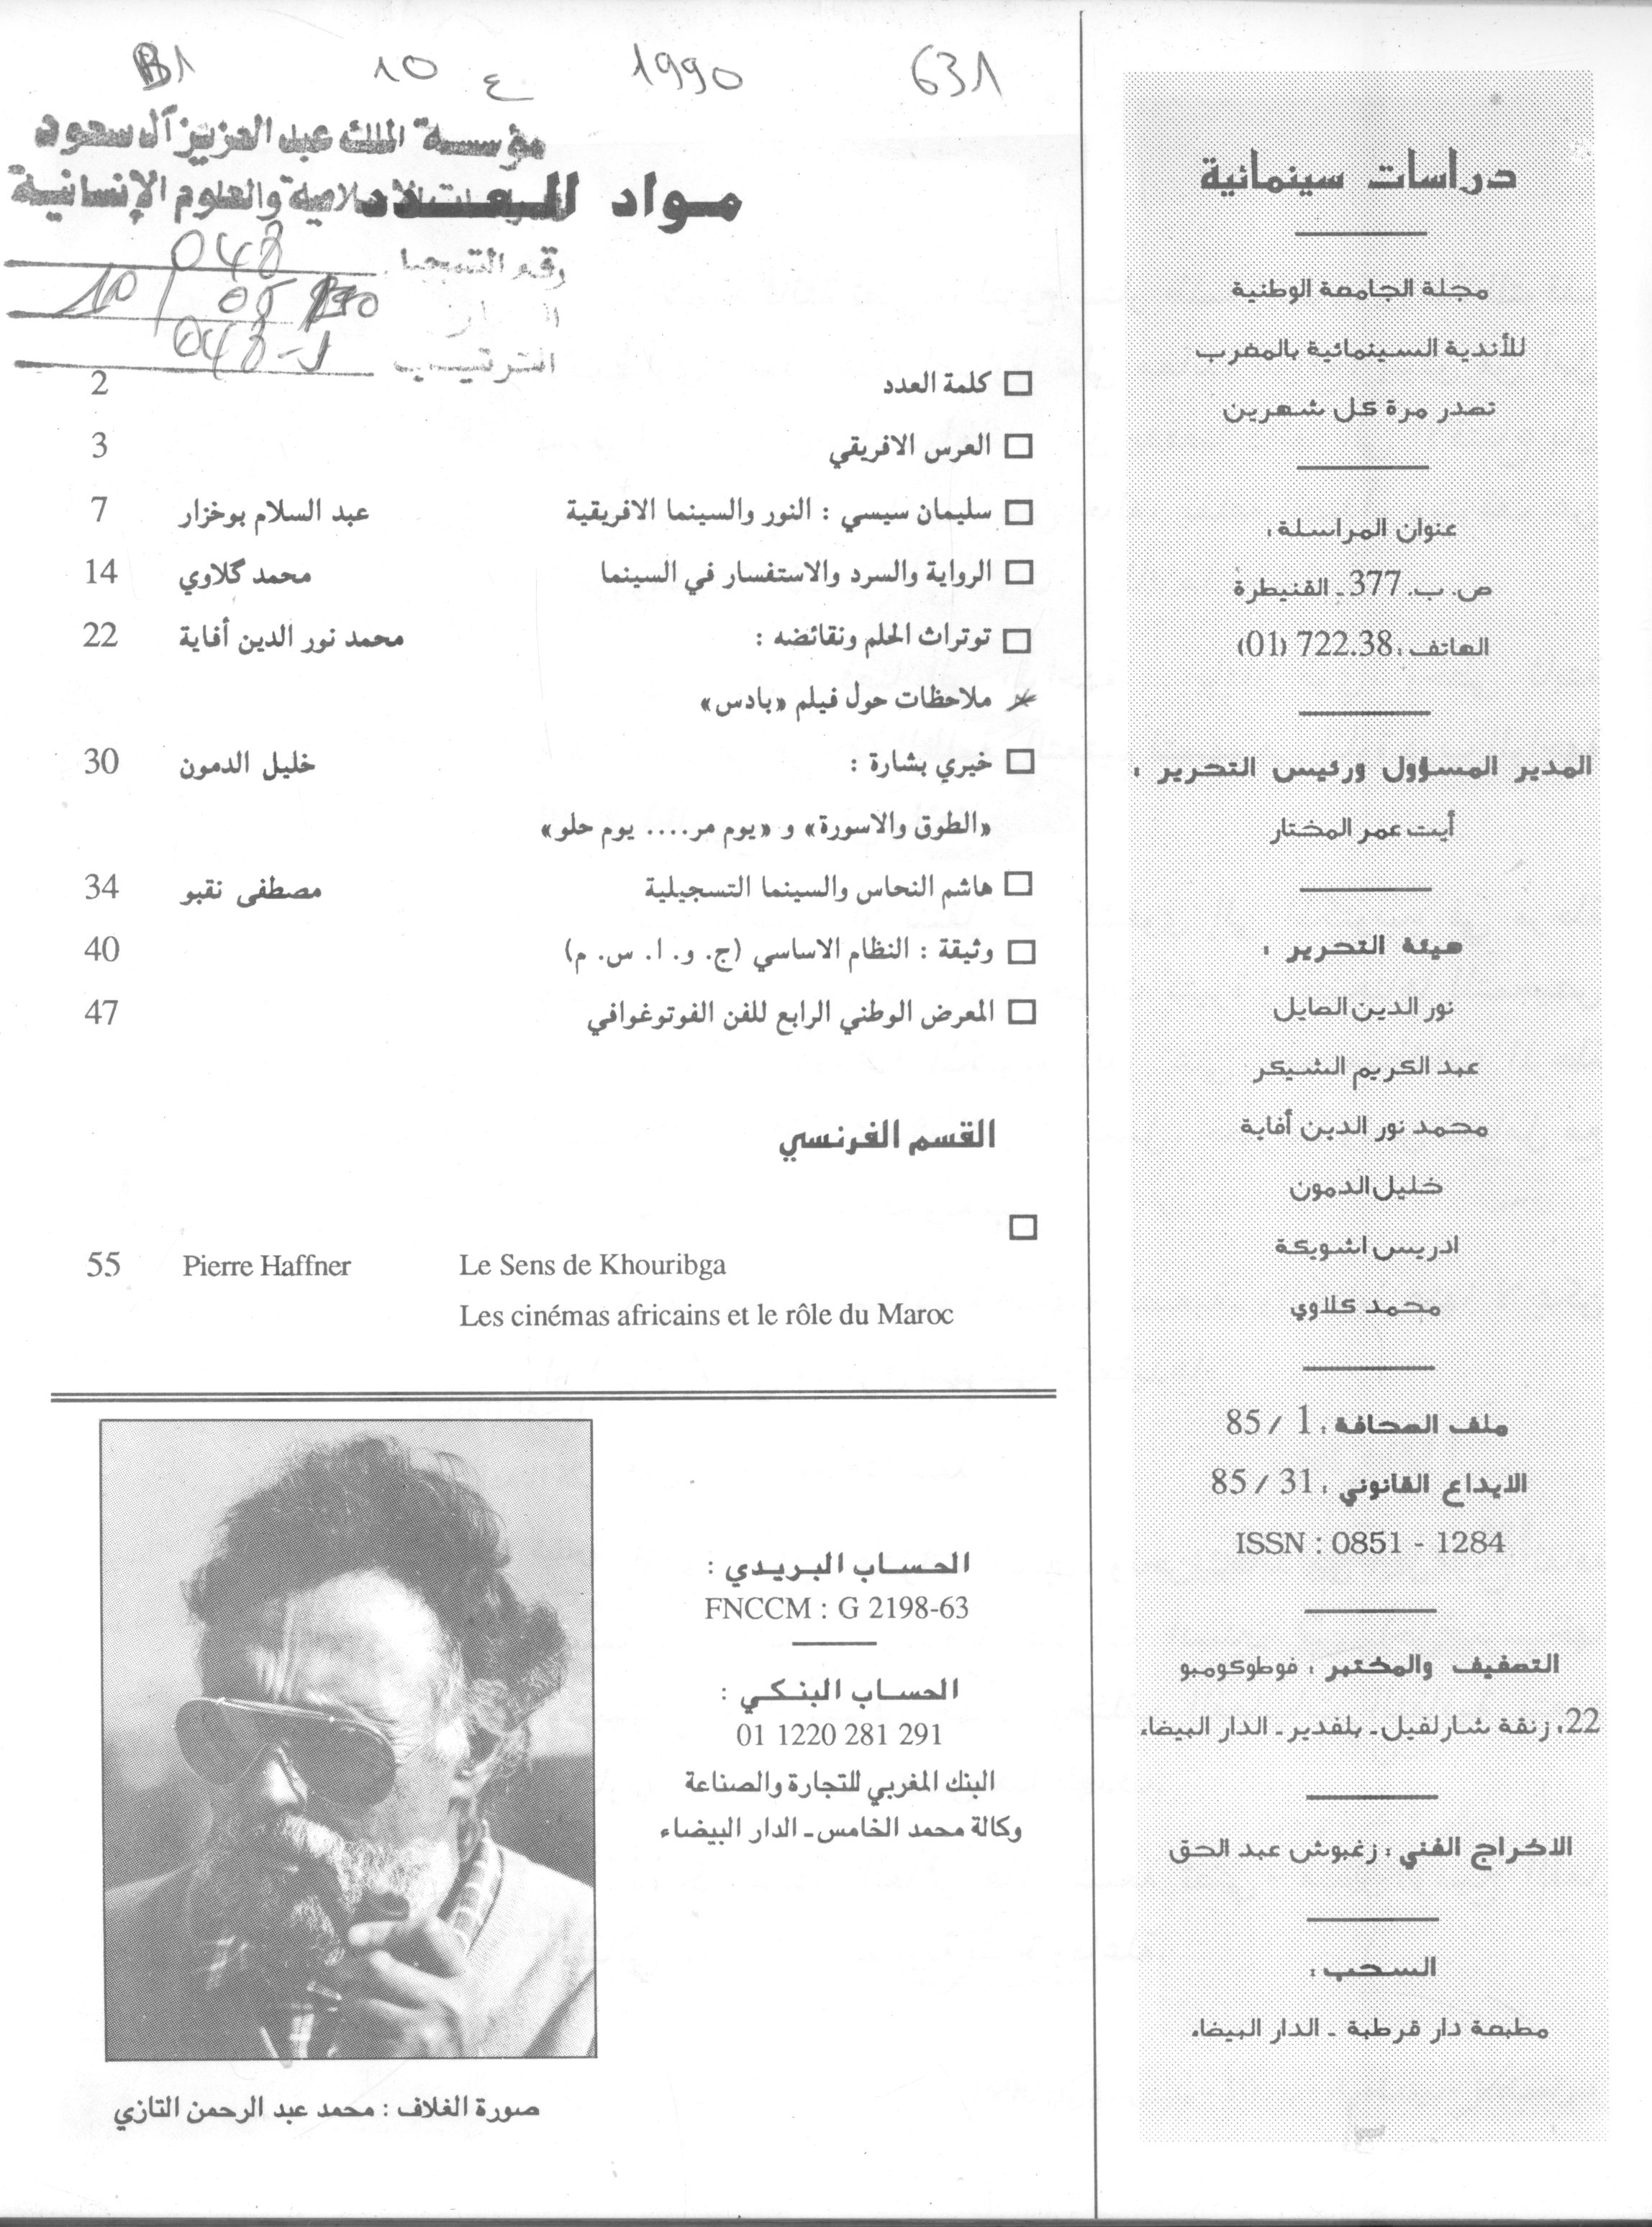 631 1990 ع 10 B1
مؤسسة الملك عبد العزيز آل سعود
والعلوم الإنسانية
مواد العدد
رقم التسجيل 048
10 / 05
الترتيب 048-J
كلمة العدد 2
العرس الافريقي 3
سليمان سيسي : النور والسينما الافريقية عبد السلام بوخزار 7
الرواية والسرد والاستفسار في السينما محمد گلاوي 14
توتراث الحلم ونقائضه : محمد نور الدين أفاية 22
ملاحظات حول فيلم «بادس»
خيري بشارة : خليل الدمون 30
«الطوق والاسورة» و «يوم مر.... يوم حلو»
هاشم النحاس والسينما التسجيلية مصطفى نقبو 34
وثيقة : النظام الاساسي (ج. و. ا. س. م) 40
المعرض الوطني الرابع للفن الفوتوغوافي 47
القسم الفرنسي
55 Pierre Haffner Le Sens de Khouribga
Les cinémas africains et le rôle du Maroc
الحساب البريدي :
FNCCM : G 2198-63
الحساب البنكي :
01 1220 281 291
البنك المغربي للتجارة والصناعة
وكالة محمد الخامس ـ الدار البيضاء
صورة الغلاف : محمد عبد الرحمن التازي
دراسات سينمائية
مجلة الجامعة الوطنية
للأندية السينمائية بالمغرب
تصدر مرة كل شهرين
عنوان المراسلة :
ص. ب. 377 ـ القنيطرة
الهاتف : 722.38 (01)
المدير المسؤول ورئيس التحرير :
أيت عمر المختار
هيئة التحرير :
نور الدين الصايل
عبد الكريم الشيكر
محمد نور الدين أفاية
خليل الدمون
ادريس اشويكة
محمد كلاوي
ملف الصحافة : 1 / 85
الايداع القانوني : 31 / 85
ISSN : 0851 - 1284
التصفيف والمختبر : فوطوكومبو
22، زنقة شارلفيل ـ بلفدير ـ الدار البيضاء
الاخراج الفني : زغبوش عبد الحق
السحب :
مطبعة دار قرطبة ـ الدار البيضاء